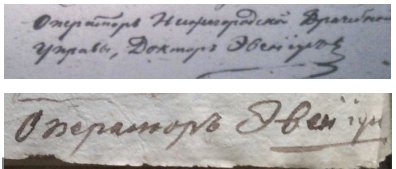 Операторъ Нижегородской Врачебной
Управы, Докторъ Эвеніусъ
Операторъ Эвеніус